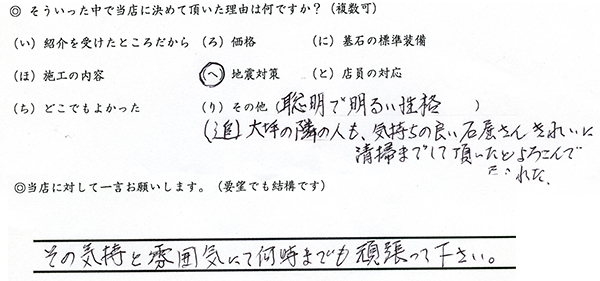 ◎ そういった中で当店に決めて頂いた理由は何ですか？（複数可）
（い）紹介を受けたところだから （ろ）価格 （に）墓石の標準装備
（ほ）施工の内容 （へ）地震対策 （と）店員の対応
（ち）どこでもよかった （り）その他（聡明で明るい性格）
（追）大坪の隣の人も、気持ちの良い石屋さんきれいに
清掃までして頂いたとよろこんで
れた、
◎当店に対して一言お願いします。（要望でも結構です）
その気持と雰囲気にて何時までも頑張って下さい。